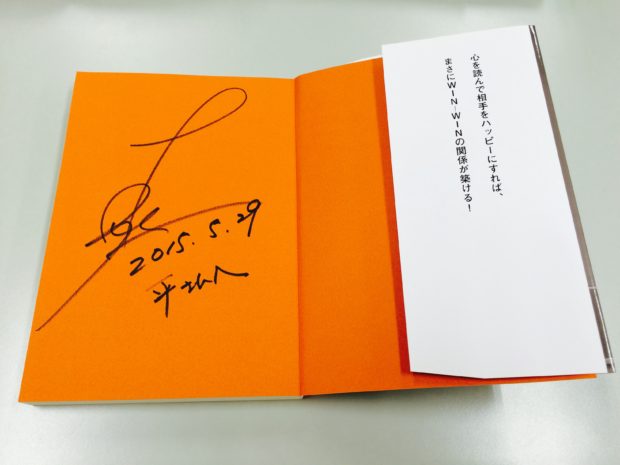 2015.5.29
平さんへ
心を読んで相手をハッピーにすれば、
まさにWIN-WINの関係が築ける!